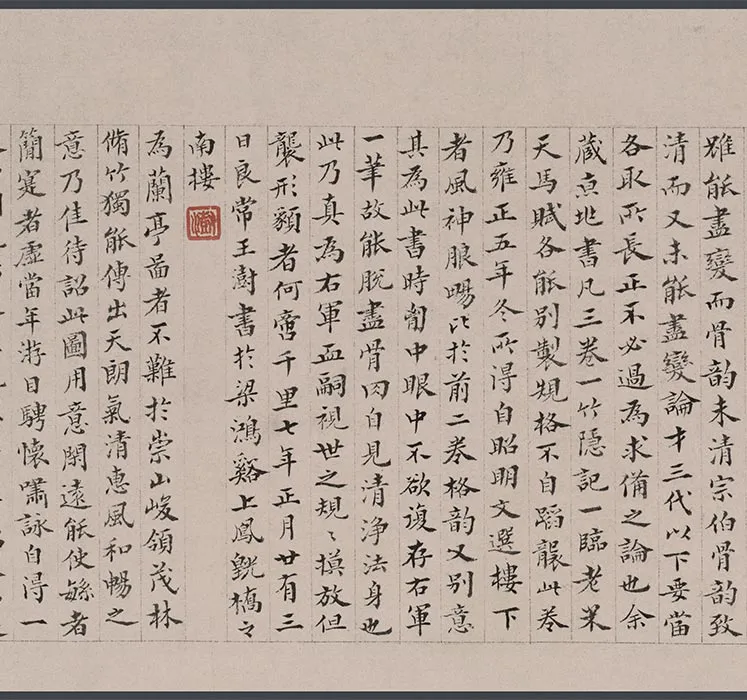 雖能盡變而骨韵未清宗伯骨韵致
清而又未能盡變論才三代以下要當
各取所長正不必過為求備之論也余
藏京兆書凡三卷一竹隱記一臨老米
天馬賦各能別製規格不自蹈襲此卷
乃雍正五年冬所得自昭明文選樓下
者風神朖暢比於前二卷格韵又別意
其為此書時匈中眼中不欲復存右軍
一筆故能脫盡骨肉自見清淨法身也
此乃真為右軍血嗣視世之規〻摸放但
襲形貌者何啻千里七年正月廿有三
日良常王澍書於梁鴻谿上鳳橋之
南樓
為蘭亭啚者不難於崇山峻領茂林
脩竹獨能傳出天朗氣清惠風和暢之
意乃佳待詔此圖用意閑遠能使緐者
簡寔者虛當年游目騁懷嘯詠自得一